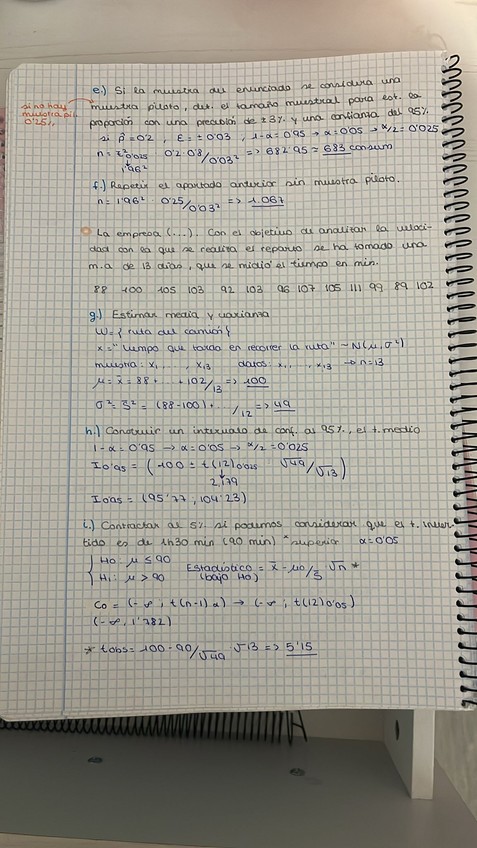 e.) Si la muestra del enunciado se considera una
si no hay
muestra pil.
0'25%
muestra piloto, det. el tamaño muestral para est. la
proporción con una precisión de ±3% y una confianza del 95%.
si p̂=0'2, ε=±0'03, 1-α=0'95 → α=0'05 → α/2=0'025
n = z²0'025 0'2·0'8/0'03² => 682'95 ≈ 683 consum
1'96²
f.) Repetir el apartado anterior sin muestra piloto.
n = 1'96² · 0'25/0'03² => 1.067
La empresa (...). Con el objetivo de analizar la veloci-
dad con la que se realiza el reparto se ha tomado una
m.a de 13 días, que se midió el tiempo en min.
88 100 105 103 92 103 96 107 105 111 99 89 102
g.) Estimar media y varianza
W = { ruta del camión }
x = "tiempo que tarda en recorrer la ruta" ~ N(μ, σ²)
muestra: x₁, ..., x₁₃ datos: x₁, ..., x₁₃ → n=13
μ = x̄ = 88 + ... + 102/13 => 100
σ² = S² = (88-100) + ... /12 => 49
h.) Construir un intervalo de conf. al 95%, el t. medio
1-α = 0'95 → α = 0'05 → α/2 = 0'025
I0'95 = (100 ± t(12)0'025 √49/√13)
2,179
I0'95 = (95'77, 104'23)
i.) Contrastar al 5% si podemos considerar que el t. inver-
tido es de 1h30 min (90 min) *superior α=0'05
H0: μ ≤ 90
H1: μ > 90
Estadístico = x̄ - μ0/S √n *
(bajo H0)
C0 = (-∞, t(n-1)α) → (-∞, t(12)0'05)
(-∞, 1'782)
* tobs = 100-90/√49 √13 => 5'15